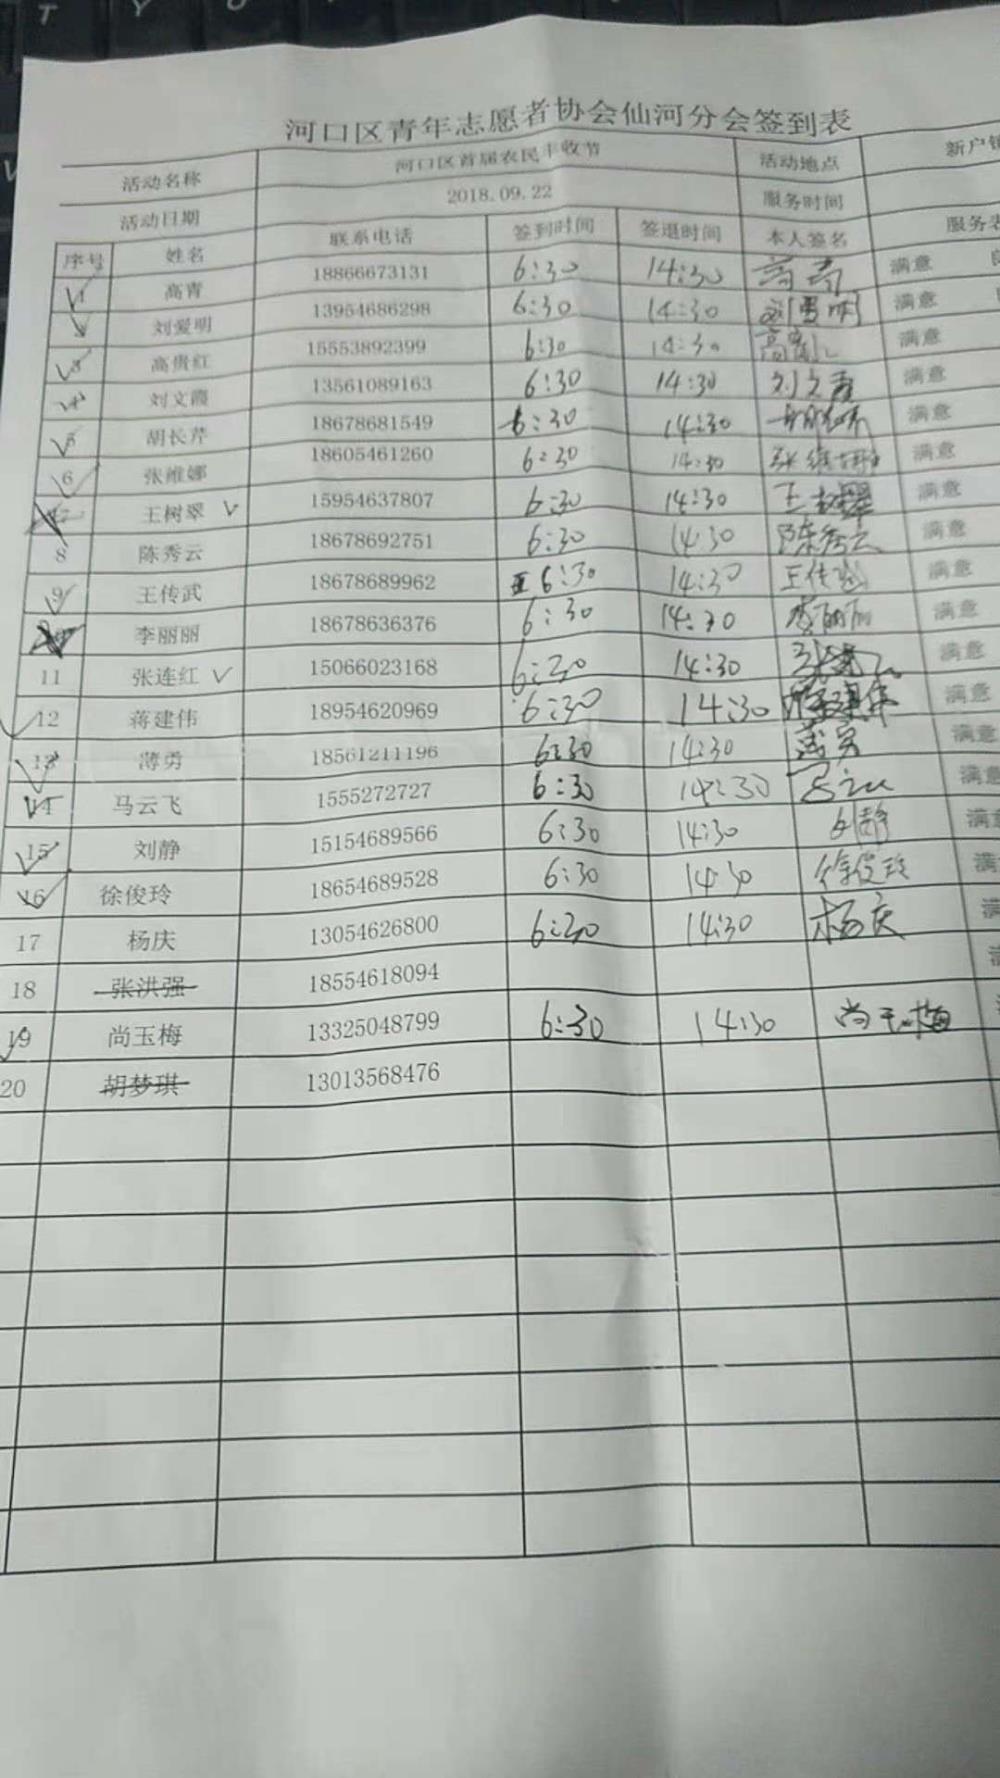 河口区青年志愿者协会仙河分会签到表
活动名称 河口区首届农民丰收节 活动地点 新户镇
活动日期 2018.09.22 服务时间
序号 姓名 联系电话 签到时间 签退时间 本人签名 服务表
1 高青 18866673131 6:30 14:30 高青 满意
刘爱明 13954686298 6:30 14:30 刘爱明 满意
3 高贵红 15553892399 6:30 14:30 满意
4 刘文霞 13561089163 6:30 14:30 刘文霞 满意
5 胡长芹 18678681549 6:30 14:30 满意
6 张维娜 18605461260 6:30 14:30 张维娜 满意
王树翠 15954637807 6:30 14:30 王树翠 满意
8 陈秀云 18678692751 6:30 14:30 陈秀云 满意
9 王传武 18678689962 6:30 14:30 王传武 满意
李丽丽 18678636376 6:30 14:30 李丽丽 满意
11 张连红 15066023168 6:30 14:30 满意
12 蒋建伟 18954620969 6:30 14:30 蒋建伟 满意
13 薄勇 18561211196 6:30 14:30 薄勇 满意
14 马云飞 1555272727 6:30 14:30 满意
15 刘静 15154689566 6:30 14:30 刘静 满意
16 徐俊玲 18654689528 6:30 14:30 徐俊玲 满
17 杨庆 13054626800 6:30 14:30 杨庆 满
18 张洪强 18554618094 满
19 尚玉梅 13325048799 6:30 14:30 尚玉梅
20 胡梦琪 13013568476